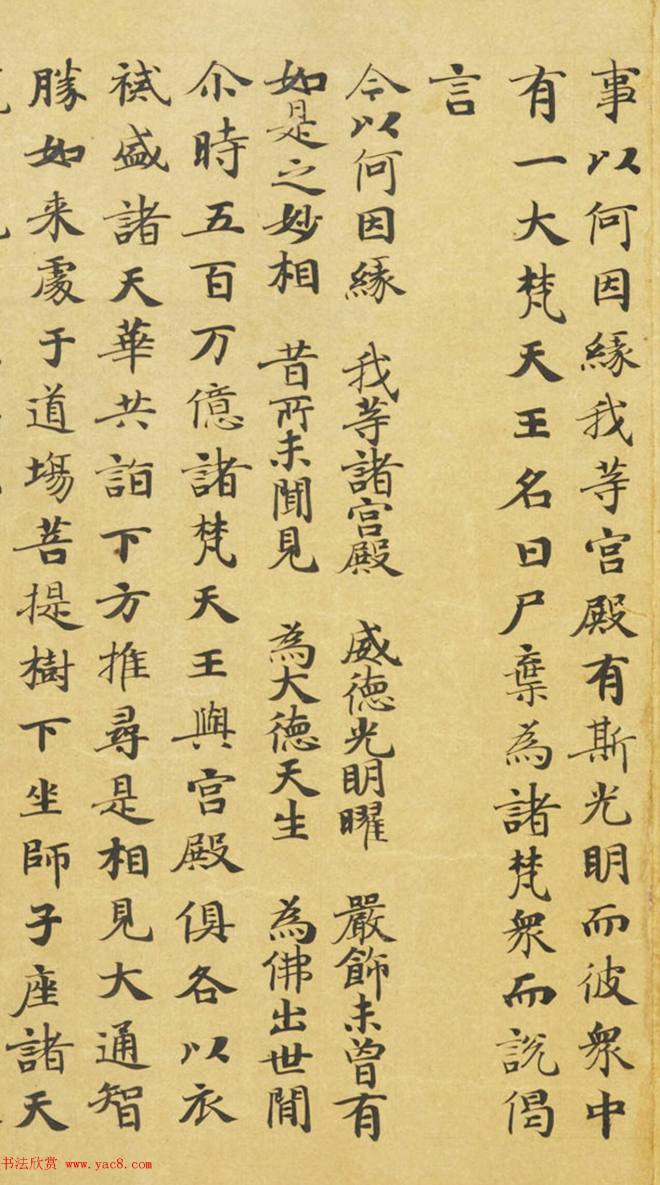 事以何因緣我等宮殿有斯光明而彼衆中
有一大梵天王名曰尸棄為諸梵衆而説偈
言
今以何因緣　我等諸宮殿　威德光明曜　嚴飾未曾有
如是之妙相　昔所未聞見　為大德天生　為佛出世間
尒時五百万億諸梵天王與宮殿俱各以衣
裓盛諸天華共詣下方推尋是相見大通智
勝如来處于道場菩提樹下坐師子座諸天
书法欣赏 www.yac8.com